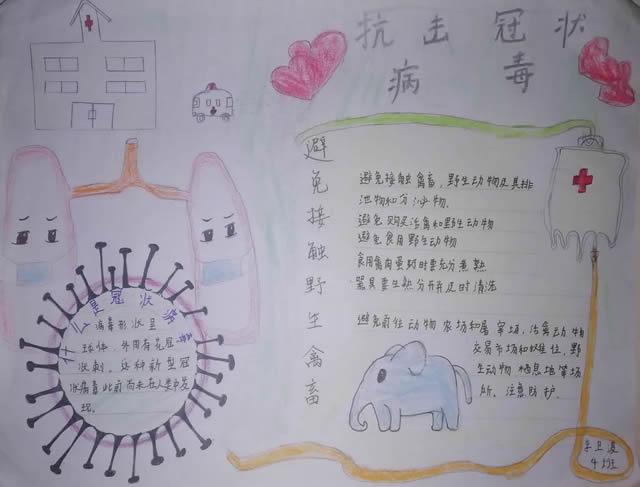 抗击冠状
病毒
避免接触野生禽畜
避免接触禽畜,野生动物及其排
泄物和分泌物.
避免购买活禽和野生动物
避免食用野生动物
食用禽肉蛋奶时要充分煮熟
器具要生熟分开并及时清洗
避免前往动物农场和屠宰场,活禽动物
交易市场和摊位,野
生动物栖息地等场
所。注意防护.
什么是冠状病毒
病毒形状呈
球体,外周有花冠
状刺。这种新型冠
状病毒此前尚未在人类中发
现。
4班